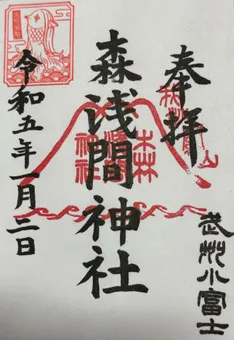 奉拝
武州小富士
森浅間神社
令和五年一月二日